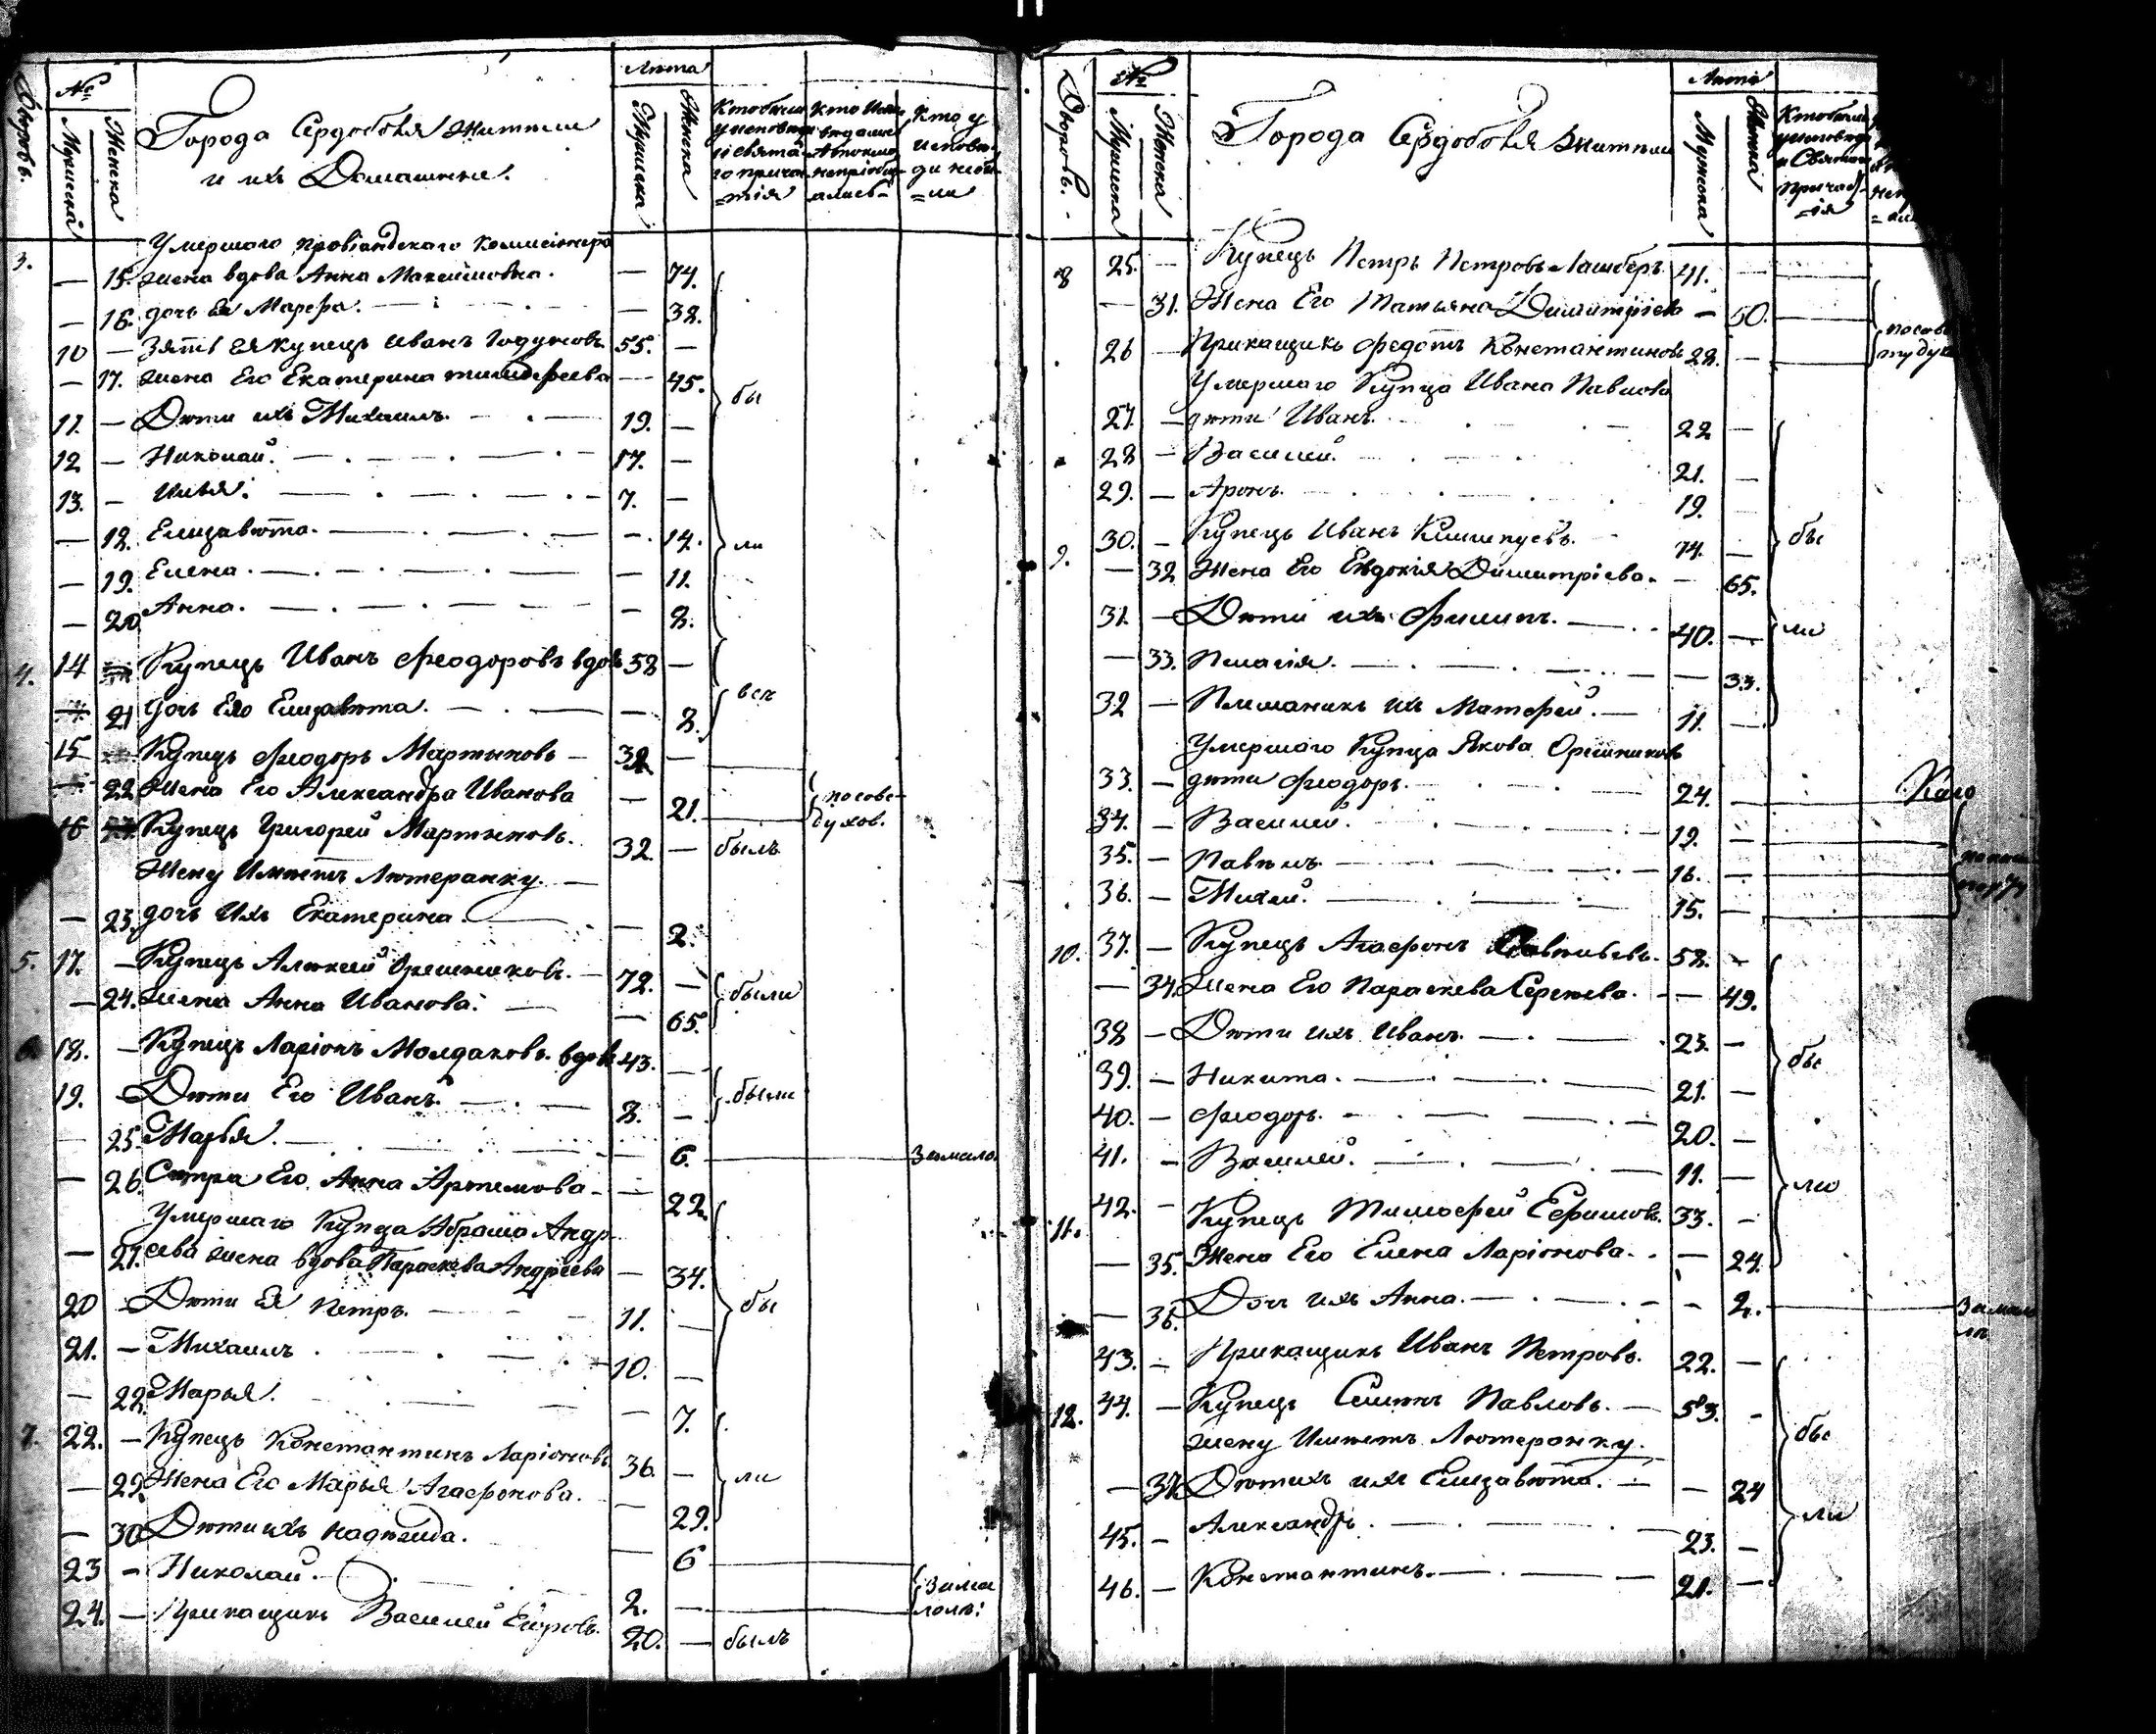 Дворовъ.
№
Мужеска
Женска
Города Сердоболя жители
и ихъ Домашніе.
Лѣта
Мужеска
Женска
Кто были
у исповѣди
и святаго
причастія
Кто у
исповѣди не были
3.
Умершаго провіандскаго комисіонера
— 15. жена вдова Анна Максимовна. — 74.
— 16. дочь Ея Марфа. — 38.
10 — Зять ея купецъ Иванъ Годуновъ 55. —
— 17. жена Его Екатерина Тимофеева — 45. бы
11. — Дѣти ихъ Михаилъ. 19. —
12 — Николай. 17. —
13. — Илья. 7. —
— 18. Елизавѣта. — 14. ли
— 19. Елена. — 11.
— 20 Анна. — 8.
4. 14 Купецъ Иванъ Феодоровъ вдов 58 —
— 21 дочь Его Елизавѣта. — 8. всѣ
15 Купецъ Феодоръ Мартыновъ — 38 —
— 22 Жена Его Александра Иванова — 21. по сове
духов.
16 Купецъ Григорей Мартыновъ. 32. — былъ
Жену Имѣетъ Лютеранку.
— 23. дочь Ихъ Екатерина. — 2.
5. 17. — Купецъ Алексей Орешниковъ. 72. — были
— 24. жена Анна Иванова. — 65.
6. 18. — Купецъ Ларіонъ Молдаковъ. вдов 43. —
19. — Дѣти Его Иванъ. 8. — были
— 25. Марья. — 6. за мало
— 26. Сестра Его Анна Артемова — 22
Умершаго Купца Абрама Андр
— 27. еева жена вдова Параскева Андреева — 34.
20 — Дѣти Ея Петръ. 11. — бы
21. — Михаилъ. 10. —
— 28. Марья. — 7.
7. 22. — Купецъ Константинъ Ларіоновъ 36. —
— 29. Жена Его Марья Агафонова. — 29. ли
— 30 Дѣти ихъ Надежда. — 6
23 — Николай. 2. — за мало
лѣт:
24. — Прикащикъ Василей Егоровъ. 20. — былъ
Дворовъ.
№
Мужеска
Женска
Города Сердоболя жители
Лѣта
Мужеска
Женска
Кто были
у исповѣди
и Святаго
причастія
8 25. — Купецъ Петръ Петровъ 41. —
— 31. Жена Его Татьяна Димитріева — 50.
26 — Прикащикъ Федотъ Константиновъ 28. —
Умершаго Купца Ивана Павлова
27. — дѣти Иванъ. 22 —
28 — Василей. 21. —
29. — Аронъ. 19.
9. 30. — Купецъ Иванъ 74. — бы
— 32 Жена Его Евдокія Димитріева. — 65.
31. — Дѣти ихъ Филипъ. 40. — ли
— 33. Пелагія. — 33.
32 — Племаникъ ихъ Матфей. 11. —
Умершаго Купца Якова Орешников
33. — дѣти Феодоръ. 24. —
34. — Василей. 19. —
35. — Павелъ 16. —
36. — Михей. 15. —
10. 37. — Купецъ Агафонъ 58. —
— 34. Жена Его Параскева Сергеева. — 49.
38 — Дѣти ихъ Иванъ. 23. —
39. — Никита. 21. — бы
40. — Феодоръ. 20. —
41. — Василей. 11. —
11. 42. — Купецъ Тимофей Ефимовъ. 33. — ли
— 35. Жена Его Елена Ларіонова. — 24.
— 36. Дочь ихъ Анна. — 2. за мало
лѣ
43. — Прикащикъ Иванъ Петровъ. 22. —
12. 44. — Купецъ Семенъ Павловъ. 53. —
жену Имѣетъ Лютеранку. бы
— 37. Дѣти ихъ Елизавѣта. — 24
45. — Александръ. 23. — ли
46. — Константинъ. 21. —